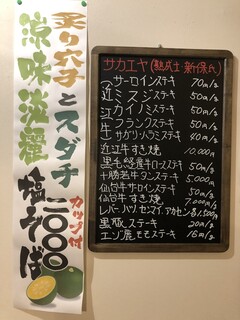 炙り穴子とスダチ
涼味淡麗塩そば
カップ付
二〇〇〇
サカエヤ(熟成士 新保氏)
サーロインステーキ 70m/g
近ミスジステーキ 50m/g
江カイノミステーキ 50m/g
牛フランクステーキ 50m/g
牛サガリ・ハラミステーキ 40m/g
近江牛すき焼 10,000m
黒毛経産牛ロースステーキ 50m/g
十勝若牛タンステーキ 5,000m
仙台牛サーロインステーキ 50m/g
仙台牛すき焼 7,000m/g
レバー、ハツ、センマイ、アカセン 各1,500m
黒豚ステーキ 20m/g
エゾ鹿モモステーキ 16m/g